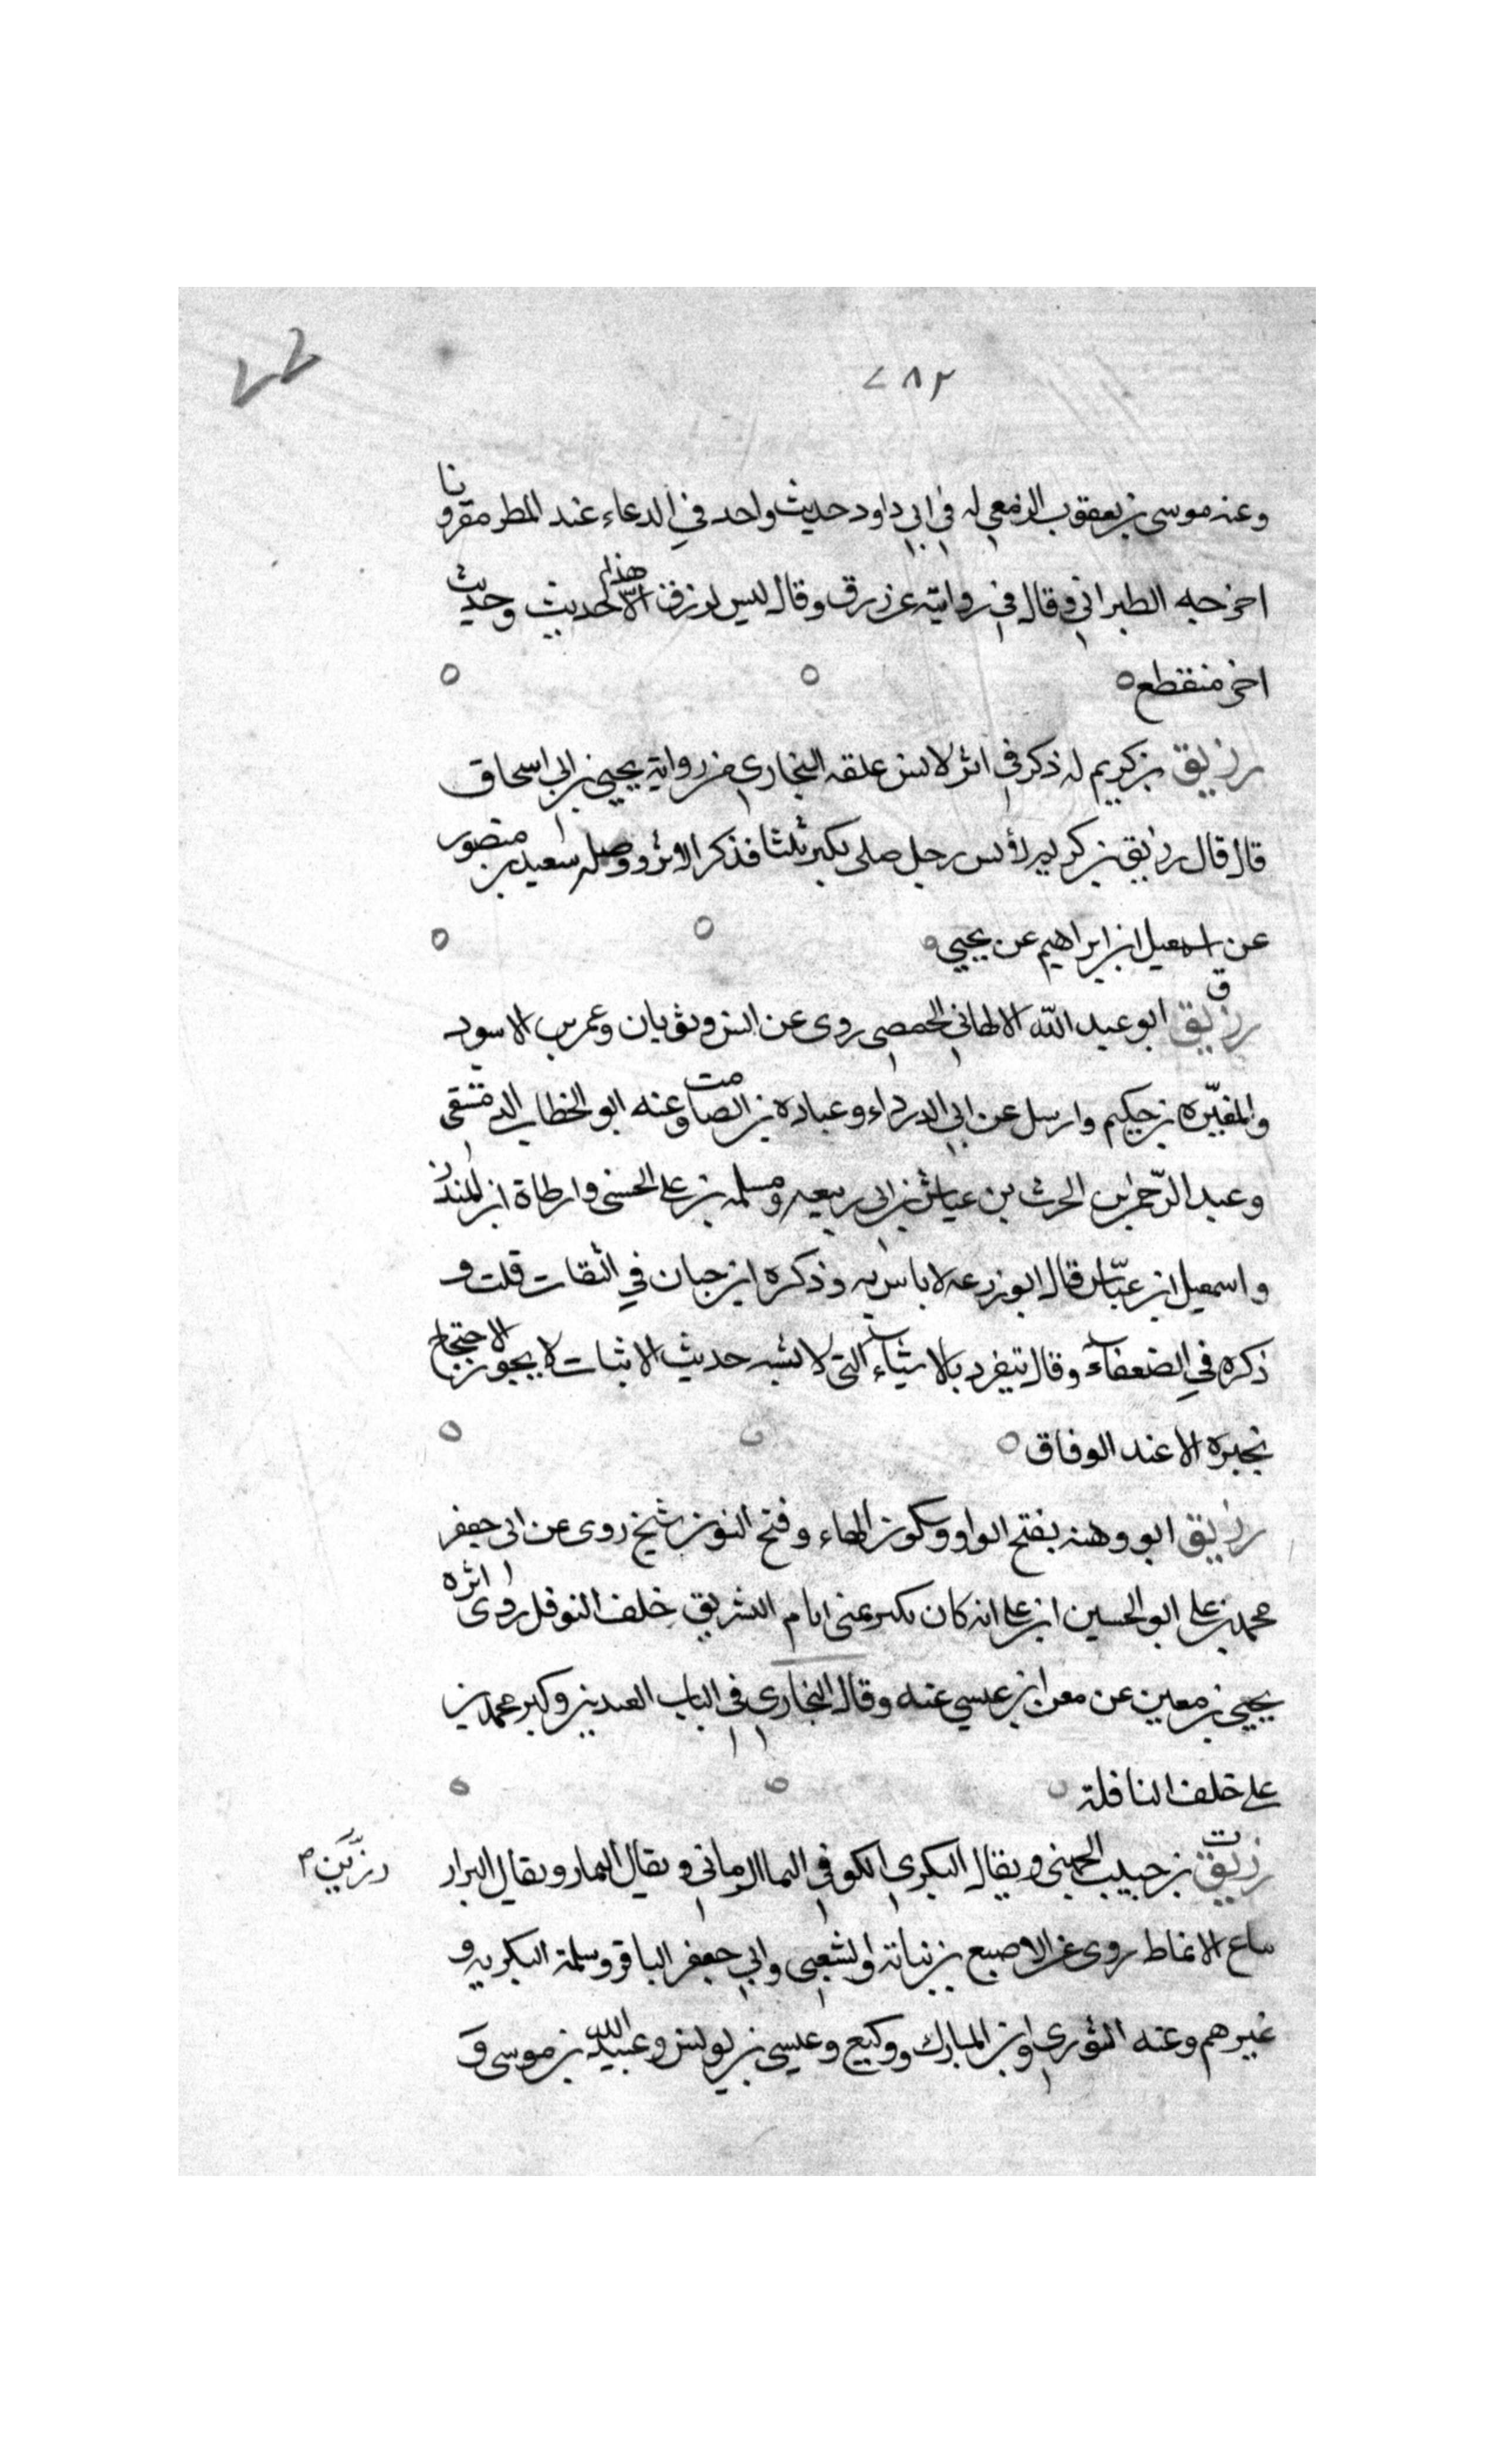 ٢٨٢
وعنه موسى بن يعقوب الزمعي له في ابي داود حديث واحد في الدعاء عند المطر مقرونا
اخرجه الطبراني وقال في روايته عن زرق وقال ليس لرزق الا هذا الحديث وحديث
اخر منقطع
رزيق بن كريم له ذكر في اثر لانس علقه البخاري من رواية يحيى بن ابي اسحاق
قال قال رزيق بن كريم لانس رجل صلى يكبر ثلثا فذكر الاثر ووصله سعيد بن منصور
عن اسمعيل ابن ابراهيم عن يحيى
ق
رزيق ابو عبد الله الالهاني الحمصي روى عن انس وثوبان وعمر بن الاسود
والمغيره بن حكيم وارسل عن ابي الدرداء وعباده بن الصامت وعنه ابو الخطاب الدمشقي
وعبد الرحمن بن الحرث بن عياش بن ابي ربيعه ومسلمه بن علي الخشني وارطاة ابن المنذر
واسمعيل ابن عياش قال ابو زرعه لا باس به وذكره ابن حبان في الثقات قلت و
ذكره في الضعفاء وقال يتفرد بالاشياء التي لا تشبه حديث الاثبات لا يجوز الاحتجاج
بخبره الا عند الوفاق
رزيق ابو وهنه بفتح الواو وسكون الهاء وفتح النون شيخ روى عن ابي جعفر
محمد بن علي ابو الحسين ابن علي انه كان يكبر بمنى ايام التشريق خلف النوفل روى اثره
يحيى بن معين عن معن ابن عيسى عنه وقال البخاري في الباب العيدين وكبر محمد بن
علي خلف النافلة
ت
رزيق بن حبيب الجهني ويقال البكري الكوفي الرماني ويقال التمار ويقال البزار
رزين م
بياع الانماط روى عن الاصبع بن نباتة والشعبي وابي جعفر الباقر وسلمة البكريه و
غيرهم وعنه الثوري وابن المبارك ووكيع وعيسى بن يونس وعبيد الله بن موسى و